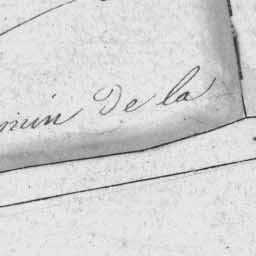 min De la